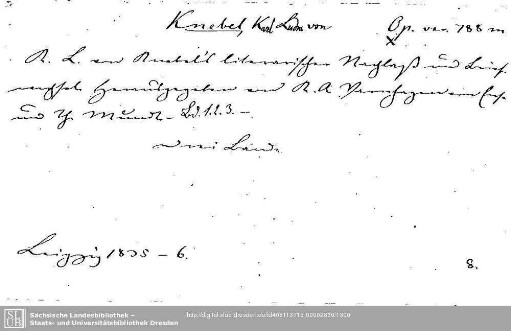 Knebel, Karl Ludw von
Op. var. 788 m
K. L. von Knebel's literarischer Nachlaß und Brief-
wechsel. Herausgegeben von K. A. Varnhagen von Ense
und Th. Mundt. Bd. 1. 2. 3. –
Drei Bände.
Leipzig 1835 – 6.
8.
Sächsische Landesbibliothek –
Staats- und Universitätsbibliothek Dresden